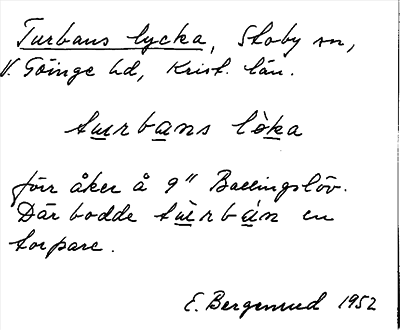 Turbans lycka, Stoby sn,
V. Göinge hd, Krist. län.
tu̲rba̲ns lò̲ka
förr åker å 9" Ballingslöv.
Där bodde tù̲rbá̲n en
torpare.
E. Bergemud 1952